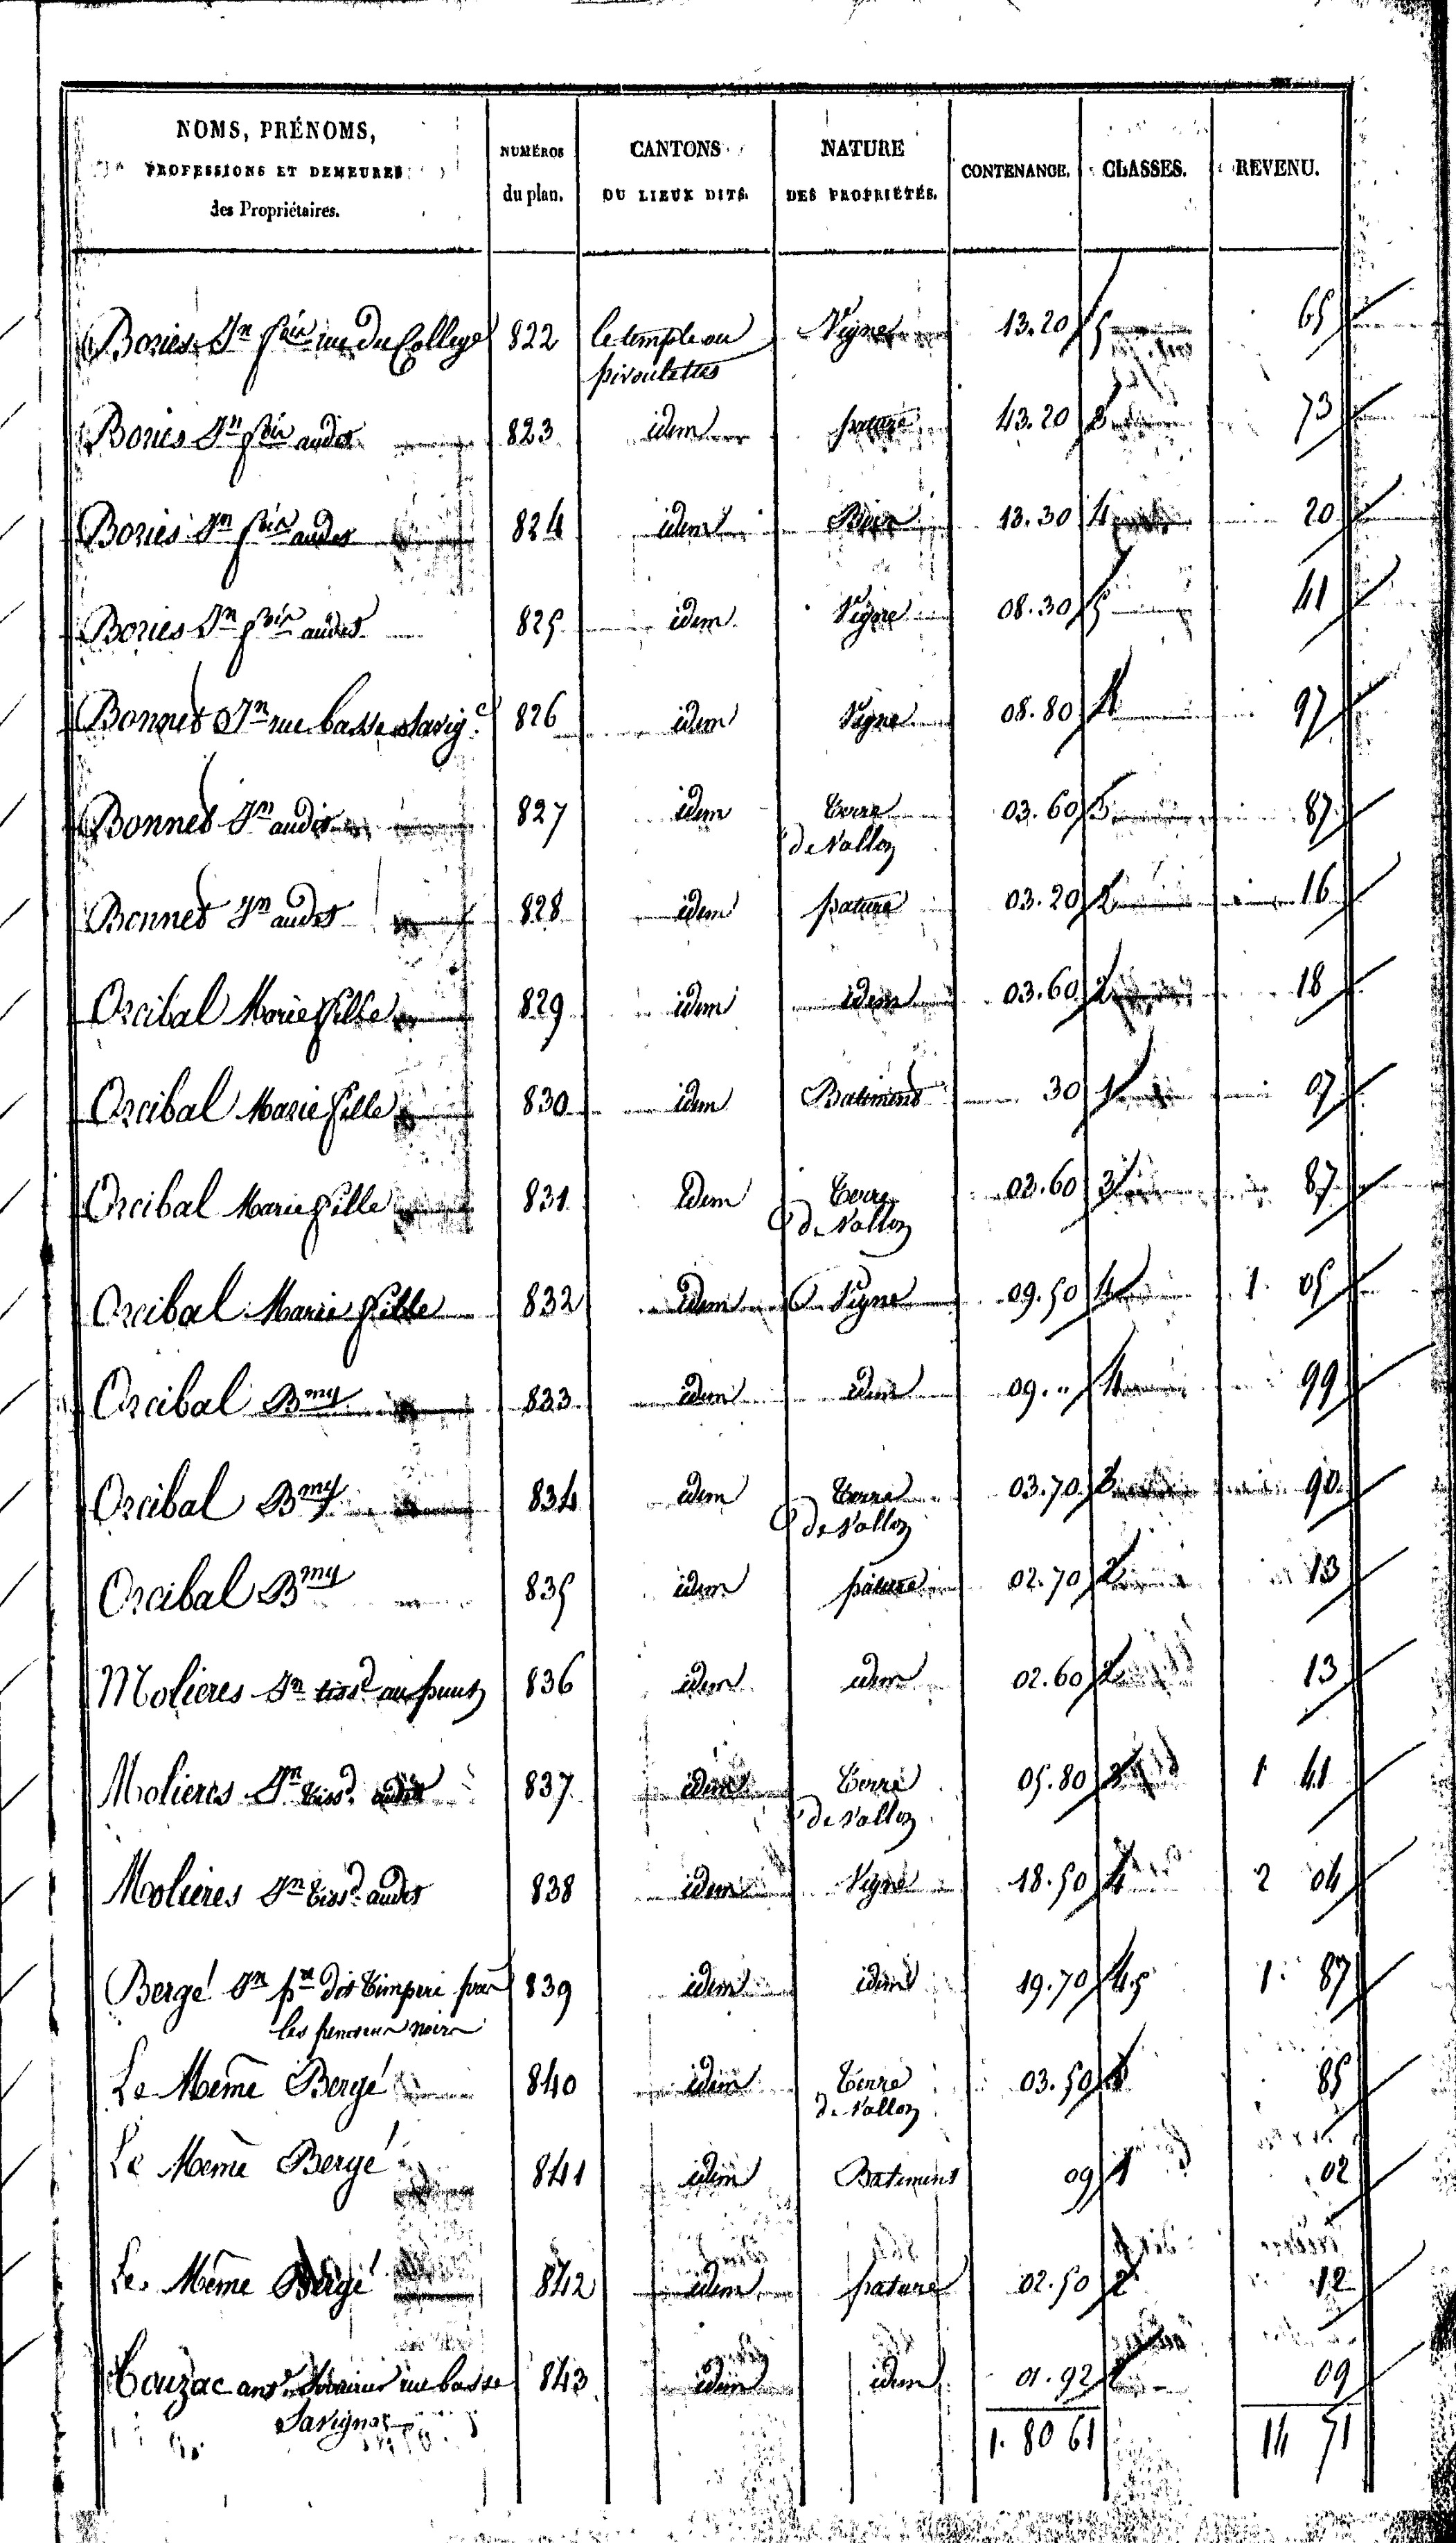 NOMS, PRÉNOMS, PROFESSIONS ET DEMEURES des Propriétaires. NUMÉROS du plan. CANTONS OU LIEUX DITS. NATURE DES PROPRIÉTÉS. CONTENANCE. CLASSES. REVENU.
Bories Jn foir rue du College 822 le temple ou pivoulettes Vigne 13.20 5 65
Bories Jn foir audit 823 idem pature 43.20 73
Bories Jn foir audit 824 idem 13.30 4 20
Bories Jn foir audit 825 idem Vigne 08.30 5 41
Bonnet Jn rue basse Savigc 826 idem Vigne 08.80 4 97
Bonnet Jn audit 827 idem Terre de Vallon 03.60 3 87
Bonnet Jn audit 828 idem pature 03.20 2 16
Orcibal Marie fille 829 idem idem 03.60 2 18
Orcibal Marie fille 830 idem Batiment 30 1 07
Orcibal Marie fille 831 idem Terre de Vallon 03.60 3 87
Orcibal Marie fille 832 idem Vigne 09.50 4 1 05
Orcibal Bmy 833 idem idem 09. " 4 99
Orcibal Bmy 834 idem Terre de Vallon 03.70 3 90
Orcibal Bmy 835 idem pature 02.70 2 13
Molieres Jn tissd au 836 idem idem 02.60 2 13
Molieres Jn tissd audit 837 idem Terre de Vallon 05.80 3 1 41
Molieres Jn tissd audit 838 idem Vigne 18.50 4 2 04
Bergé Jn pre dit 839 idem idem 19.70 4.5 1 87
Le Même Bergé 840 idem Terre de Vallon 03.50 85
Le Même Bergé 841 idem Batiment 09 1 02
Le Même Bergé 842 idem pature 02.50 2 12
Couzac rue basse Savignac 843 idem idem 01.92 09
1. 80 61 14 71